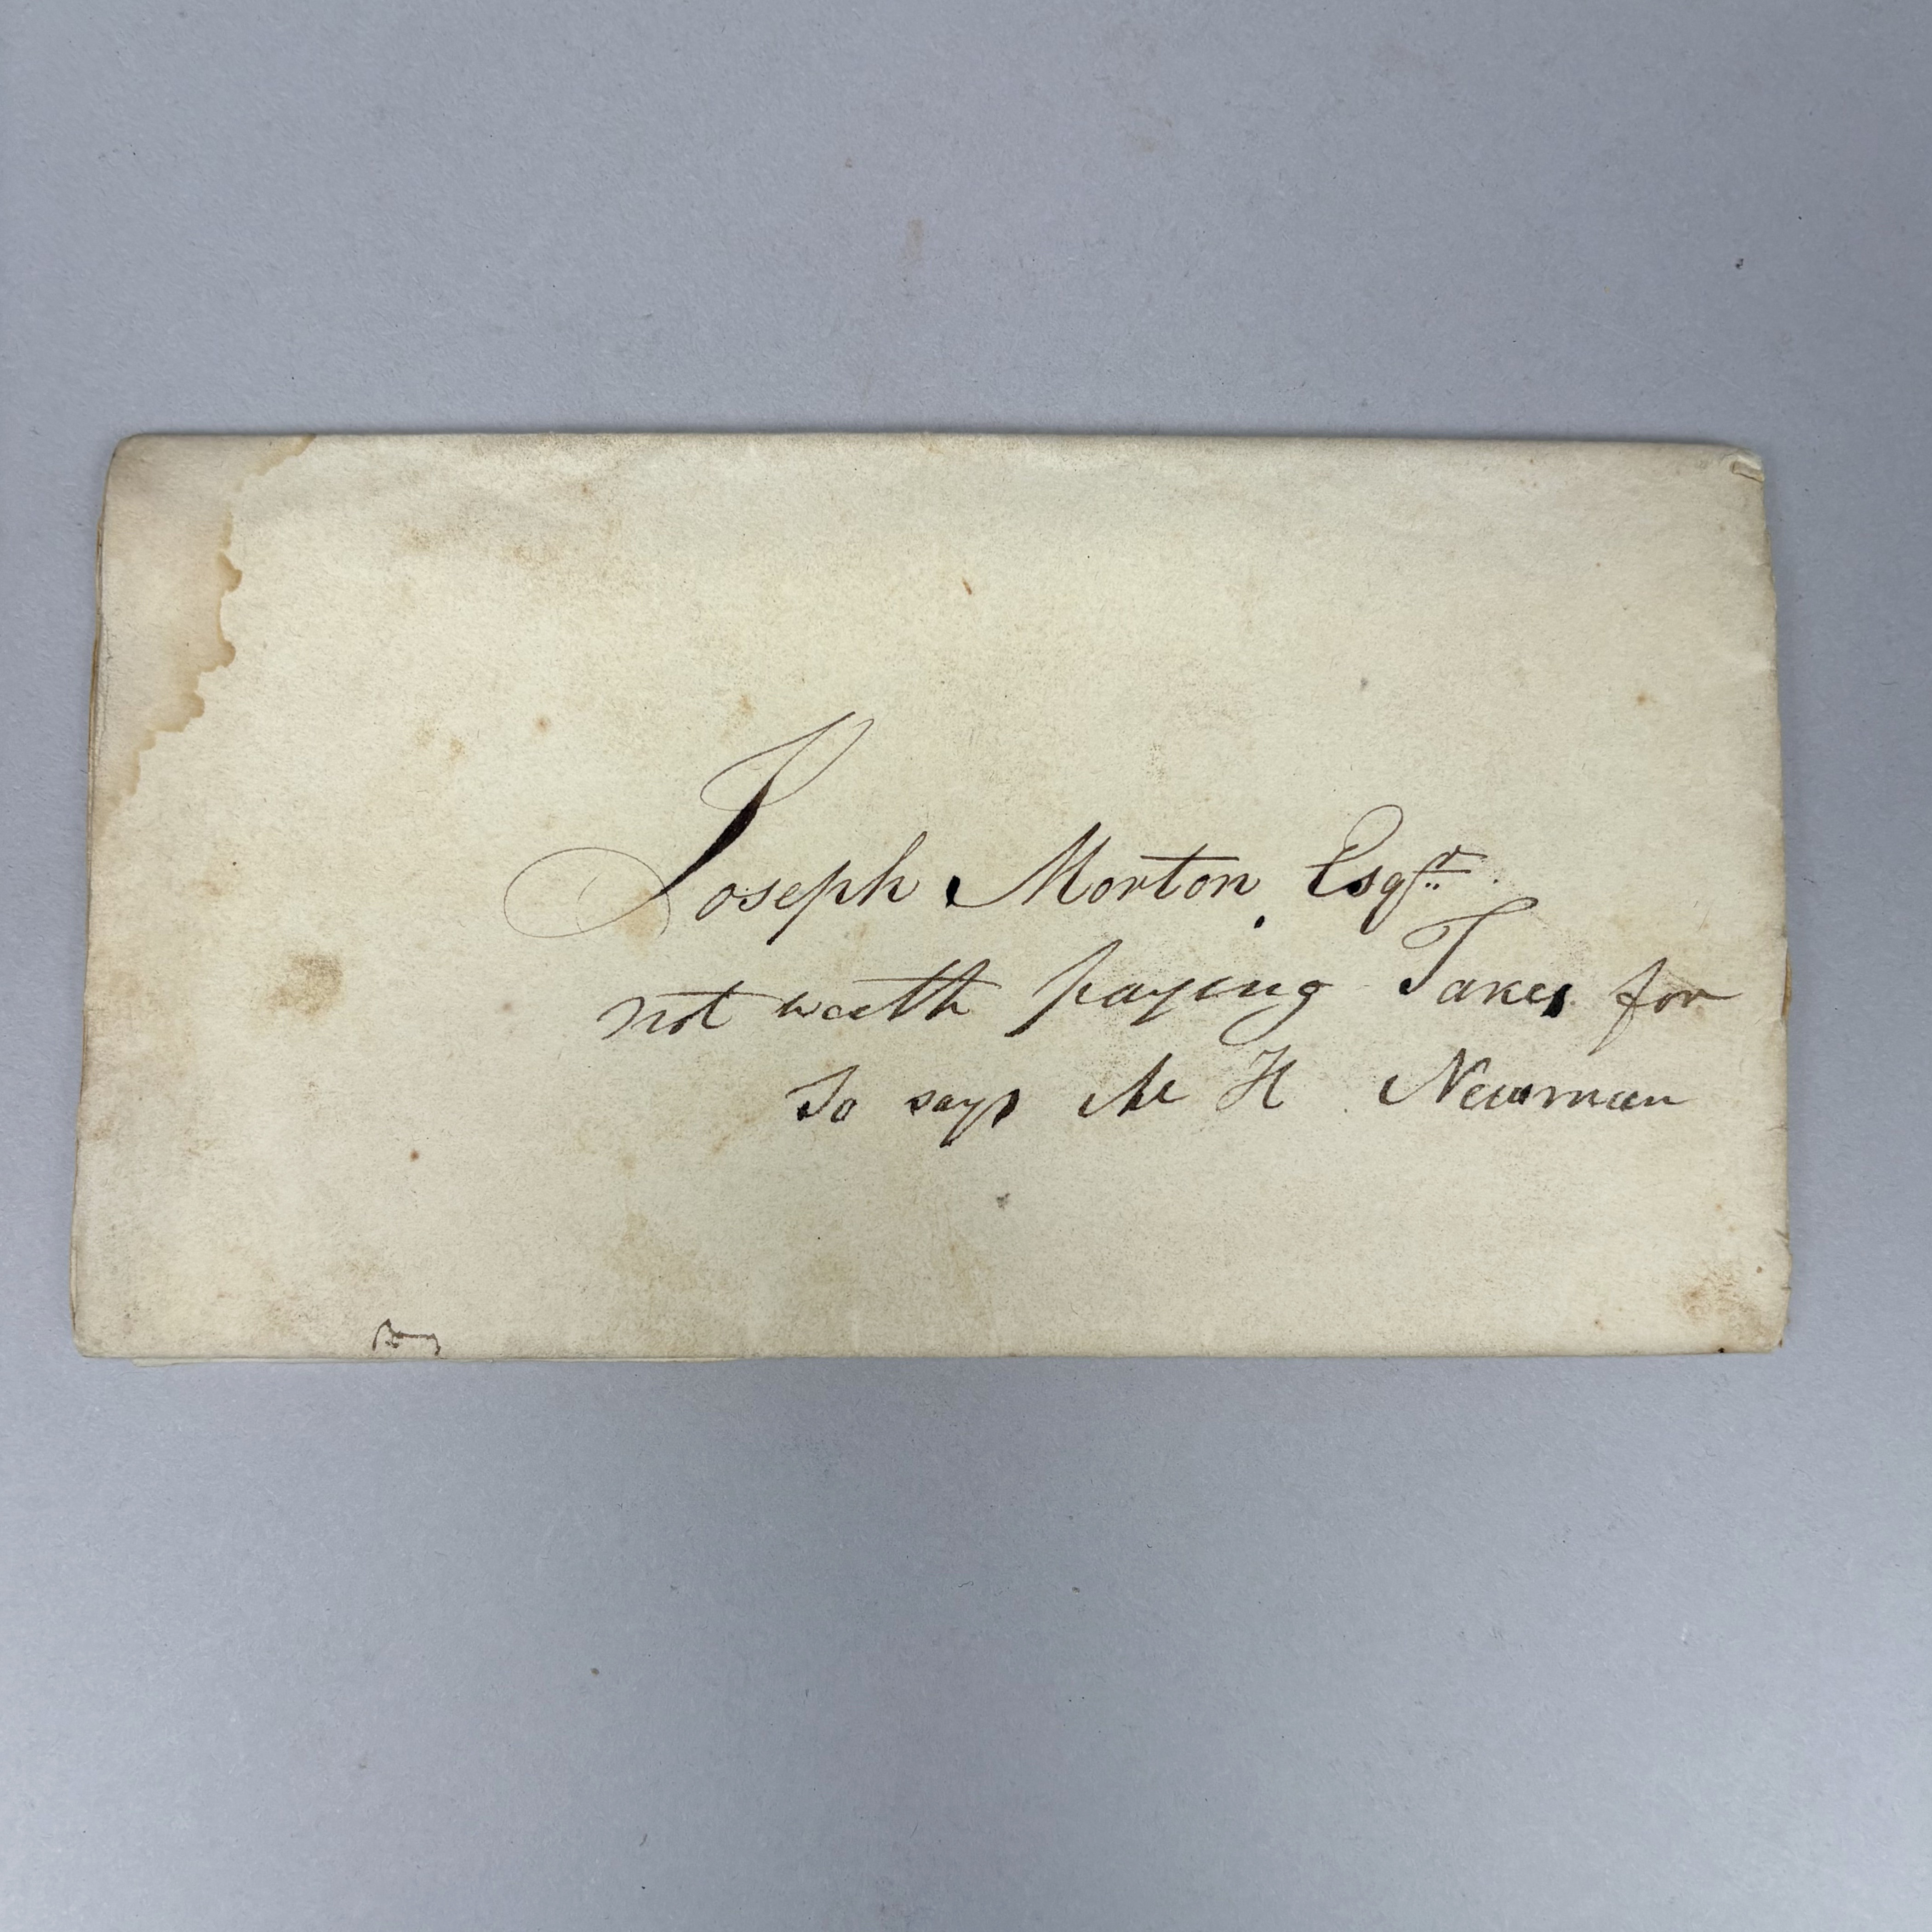 Joseph Morton Esqr.
not worth paying Taxes for
So says Mr H Newman